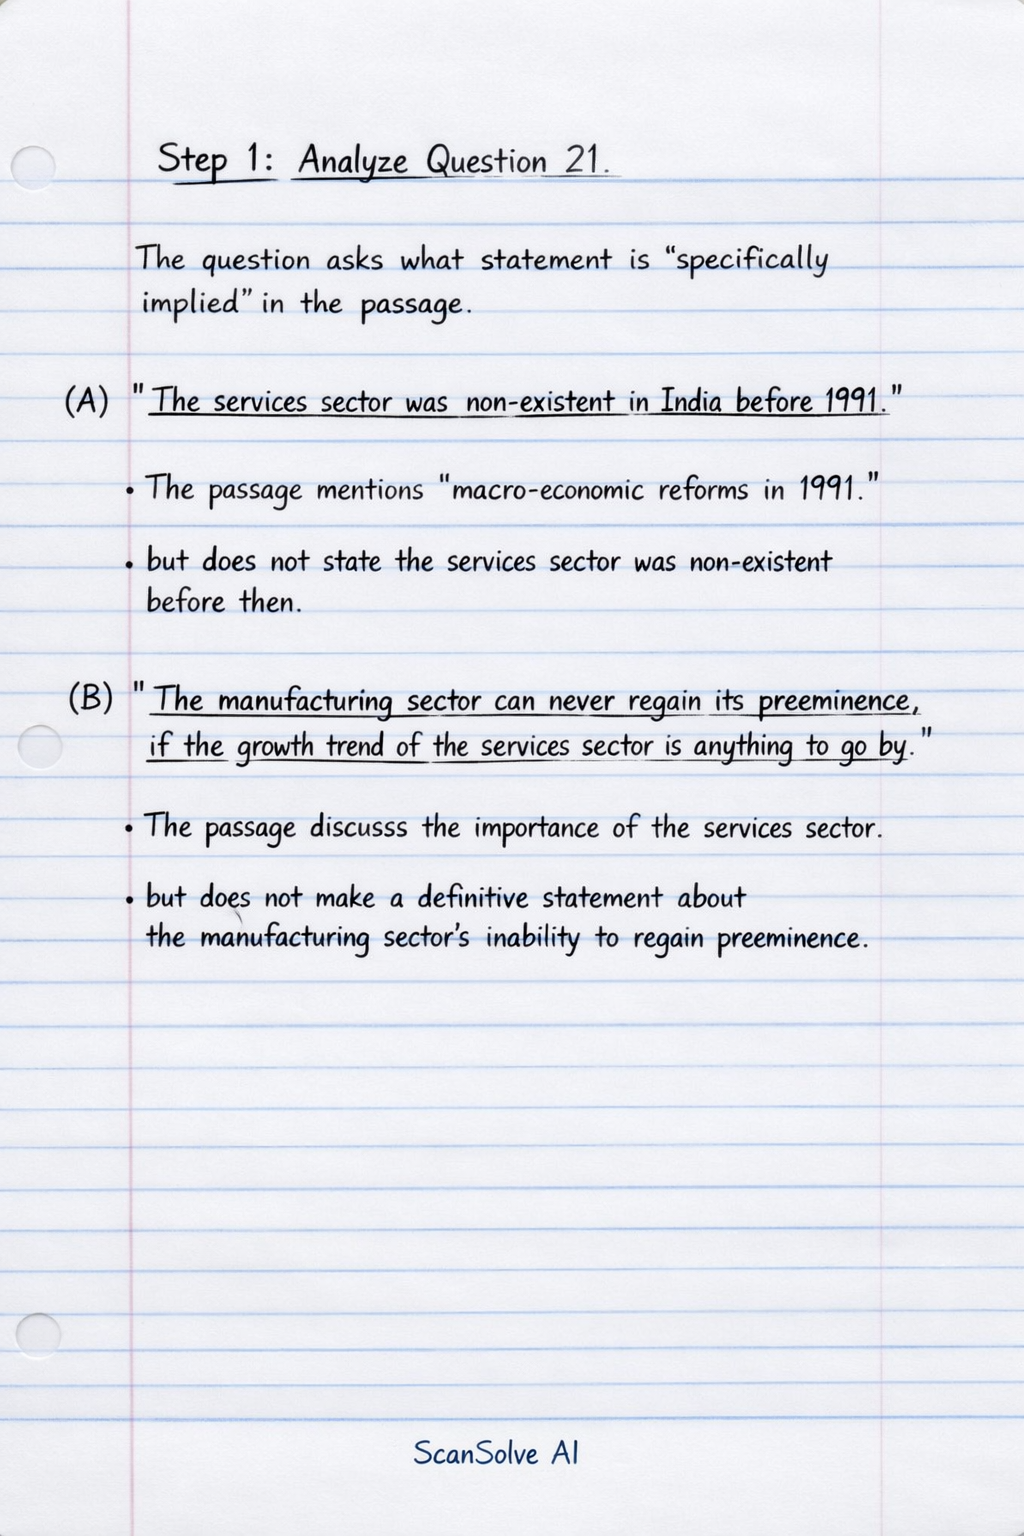 Step 1: Analyze Question 21.
The question asks what statement is "specifically
implied" in the passage.
(A) "The services sector was non-existent in India before 1991."
• The passage mentions "macro-economic reforms in 1991."
• but does not state the services sector was non-existent
before then.
(B) "The manufacturing sector can never regain its preeminence,
if the growth trend of the services sector is anything to go by."
• The passage discusss the importance of the services sector.
• but does not make a definitive statement about
the manufacturing sector's inability to regain preeminence.
ScanSolve AI